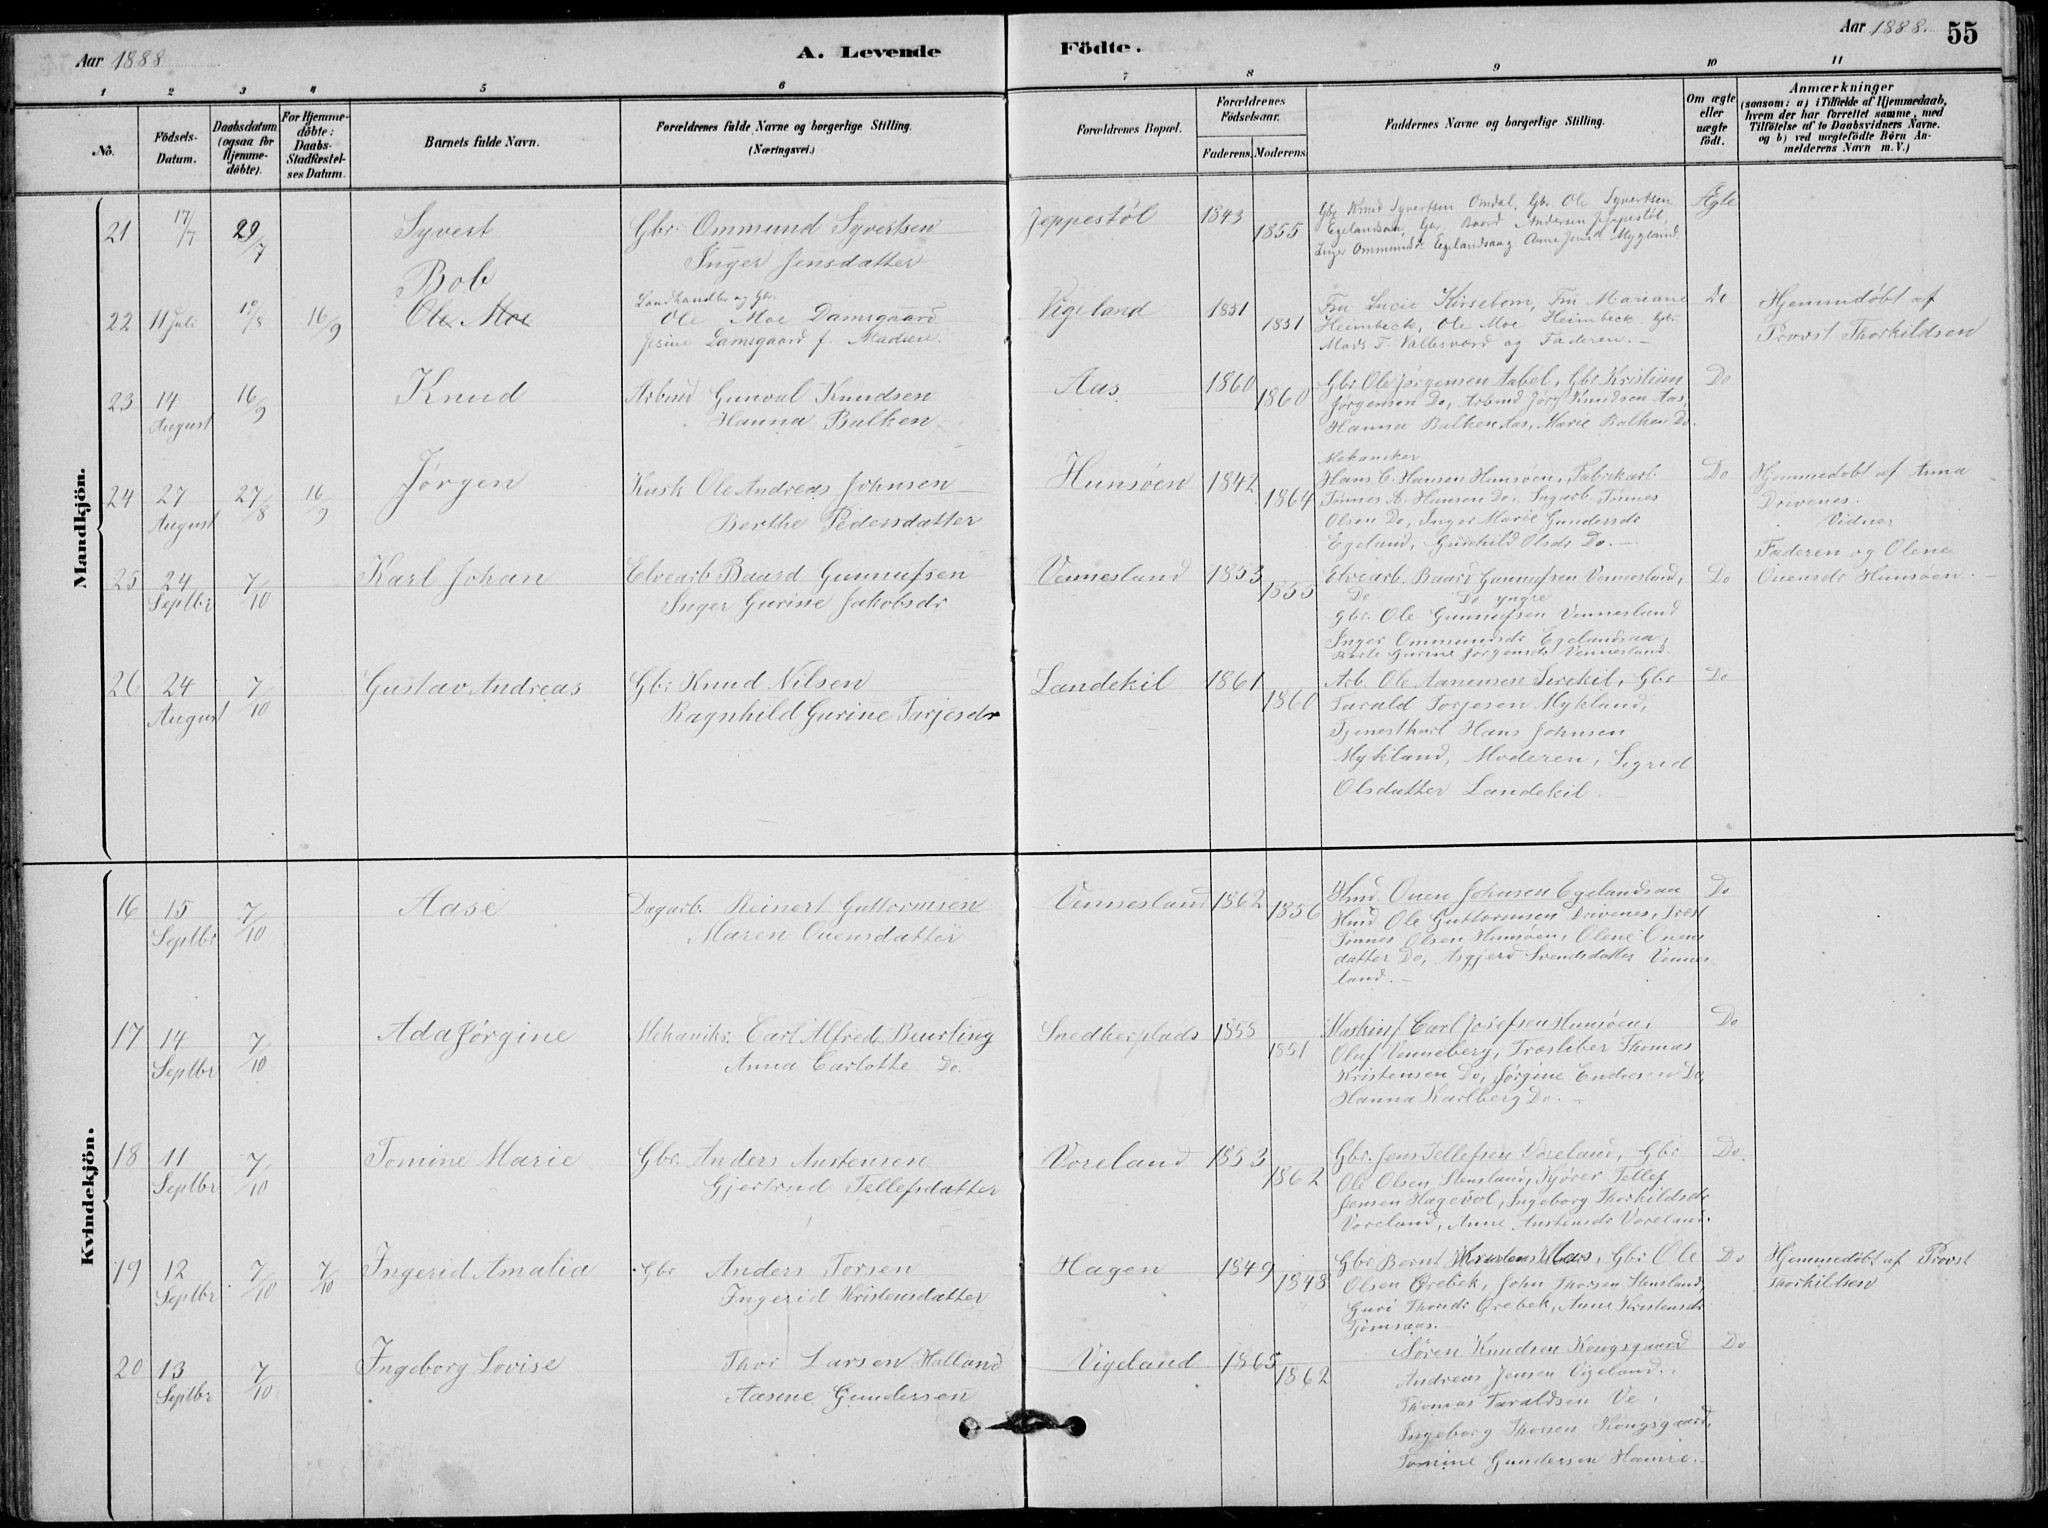 Aar 1888
A. Levende
Födte.
Aar 1888.
55
1 2 3 4 5 6 7 8 9 10 11
No.
Födsels-
Datum.
Daabsdatum
(ogsaa for
Hjemme-
döbte).
For Hjemme-
döbte:
Daabs-
Stadfæstel-
ses Datum.
Barnets fulde Navn.
Forældrenes fulde Navne og borgerlige Stilling.
(Næringsvei.)
Forældrenes Bopæl.
Forældrenes
Födselsaar.
Faderens. Moderens.
Faddernes Navne og borgerlige Stilling.
Om ægte
eller
uægte
födt.
Anmærkninger
(saasom: a) i Tilfælde af Hjemmedaab,
hvem der har forrettet samme, med
Tilföielse af to Daabsvidners Navne.
og b) ved uægtefödte Börn An-
melderens Navn m. V.)
Mandkjön.
21 17/7 29/7 Syvert
Gbr. Ommund Syvertsen
Inger Jensdatter
Jeppestøl 1843 1855
Gbr Knud Syvertsen Omdal, Gbr. Ole Syvertsen
Egelandsaa, Gbr. Baard Andersen Jeppestøl,
Inger Ommundsdr Egelandsaa, Anne Jensd. Mygland.
Ægte
22 11 Juli 10/8 16/9
Bob
Ole Moe
Landhandler og Gbr.
Ole Moe Damsgaard
Jesine Damsgaard f. Madsen.
Vigeland 1851 1851
Fru Lucie Kirsebom, Fru Mariane
Heimbeck, Ole Moe Heimbeck Gbr.
Mads T. Vallesværd og Faderen. —
Do
Hjemmdøbt af
Provst Thorkildsen
23 14 August 16/9 Knud
Arbmd Gunval Knudsen
Hanna Balken
Aas 1860 1860
Gbr. Ole Jørgensen Aabel, Gbr Kristian
Jørgensen Do, Arbmd Jørg Knudsen Aas,
Hanna Balken Aas, Marie Balken Do.
Do
24 27 August 27/8 16/9 Jørgen
Kusk Ole Andreas Johnsen
Berthe Pedersdatter
Hunsøen 1842 1864
Mekaniker
Hans C. Hansen Hunsøen, Fabrikarb.
Tønnes A. Hansen Do. Sagarb. Tønnes
Olsen Do, Inger Marie Gundersdr
Egeland, Gunhild Olsdr Do. —
Do
Hjemmedøbt af Anna
Drivenes.
Vidner
Faderen og Olene
Ouensdr Hunsøen. —
25 24 Septbr 7/10 Karl Johan
Elvearb. Baard Gunnufsen
Inger Gurine Jakobsdr
Vennesland 1853 1855
Elvearb. Baard Gunnufsen Vennesland,
Do Do yngre
Gbr. Ole Gunnufsen Vennesland
Inger Ommundsdr Egelandsaa,
Berte Gurine Jørgensdr Vennesland.
Do
26 24 August 7/10 Gustav Andreas
Gbr. Knud Nilsen
Ragnhild Gurine Tarjesdr
Landekil 1861 1860
Arb. Ole Aanensen Lirekil, Gbr
Tarald Torjesen Mykland,
Tjenestkarl Hans Johnsen
Mykland, Moderen, Sigrid
Olsdatter Landekil. —
Do
Kvindekjön.
16 15 Septbr 7/10 Aase
Dagarb. Reinert Guttormsen
Maren Ouensdatter
Vennesland 1862 1856
Hmd. Ouen Johnsen Egelandsaa
Hmd Ole Guttormsen Drivenes, Træsl
Tønnes Olsen Hunsøen, Olene Ouens
datter Do, Asgjerd Svendsdatter Vennes
land. —
Do
17 14 Septbr 7/10 Ada Jørgine
Mekanikr. Carl Alfred Beurling
Anna Carlotte Do.
Snedkerplads 1855 1851
Maskinf Carl Josefsen Hunsøen,
Oluf Venneberg, Træsliber Thomas
Kristensen Do, Jørgine Endresen Do,
Hanna Karlberg Do. —
Do
18 11 Septbr 7/10 Tomine Marie
Gbr. Anders Austensen
Gjertrud Tellefsdatter
Voreland 1853 1862
Gbr. Jens Tellefsen Voreland, Gbr
Ole Olsen Stensland, Kjører Tellef
Jensen Hagevol, Ingeborg Thorkildsdr
Voreland, Anne Austensdr Voreland.
Do.
19 12 Septbr 7/10 7/10 Ingerid Amalia
Gbr Anders Torsen
Ingerid Kristensdatter
Hagen 1849 1848
Gbr Bernt Kristens Aas, Gbr Ole
Olsen Ørebek, John Thorsen Stensland,
Guri Thorsdr Ørebek, Anne Kristensdr
Tjomsaas. —
Do
Hjemmedøbt af Provst
Thorkildsen
20 13 Septbr 7/10 Ingeborg Lovise
Thor Larsen Halland
Aasine Gundersen
Vigeland 1865 1862
Søren Knudsen Kongsgaard
Andreas Jensen Vigeland.
Thomas Taraldsen Ve,
Ingeborg Thorsen Kongsgaard,
Tomine Gundersen Hamre. —
Do